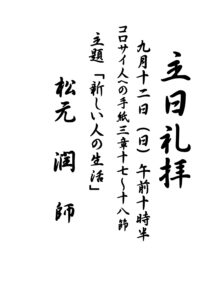 主日礼拝
九月十二日(日)午前十時半
コロサイ人への手紙三章十七〜十八節
主題「新しい人の生活」
松元 潤 師